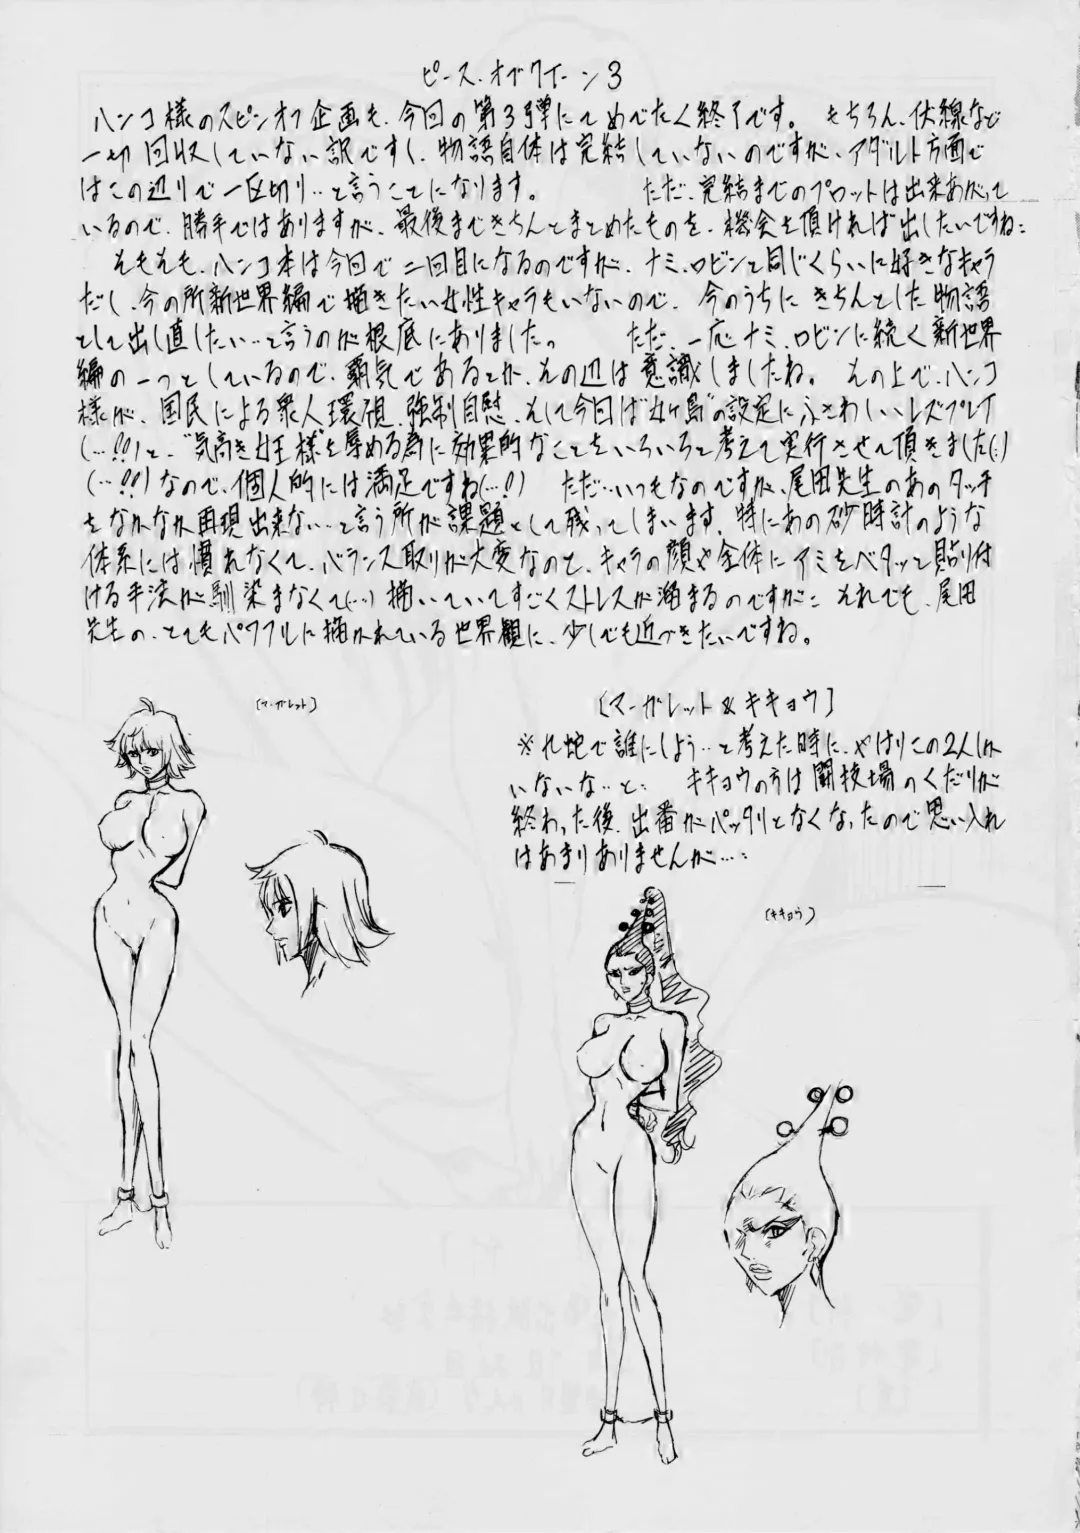 ピース・オブクイーン3
ハンコ様のスピンオフ企画も、今回の第3弾にてめでたく終了です。 もちろん、伏線など
一切回収していない訳ですし、物語自体は完結していないのですが、アダルト方面で
はこの辺りで一区切り…と言うことになります。 ただ、完結までのプロットは出来あがって
いるので、勝手ではありますが、最後まできちんとまとめたものを、機会を頂ければ出したいですね:
そもそも、ハンコ本は今回で二回目になるのですが、ナミ、ロビンと同じくらいに好きなキャラ
だし、今の所新世界編で描きたい女性キャラもいないので、今のうちに きちんとした物語
として出し直したい…と言うのが根底にありました。 ただ、一応ナミ、ロビンに続く新世界
編の一つとしているので、覇気であるとか、その辺は意識しましたね。 その上で、ハンコ
様が、国民による衆人環視、強制自慰、そして今回は"女ヶ島"の設定にふさわしいレズプレイ
(…!!)と、"気高き女王様"を辱める為に効果的なことをいろいろと考えて実行させて頂きました(:)
(…!!)なので、個人的には満足ですね(…!) ただ…いつもなのですが、尾田先生のあのタッチ
をなかなか再現出来ない…と言う所が課題として残ってしまいます。特にあの砂時計のような
体系には慣れなくて、バランス取りが大変なのと、キャラの顔や全体にアミをベタッと貼り付
ける手法が馴染まなくて(…)描いていてすごくストレスが溜まるのですが: それでも、尾田
先生の、とてもパワフルに描かれている世界観に、少しでも近づきたいですね。
[マーガレット]
[マーガレット&キキョウ]
※九蛇で誰にしよう…と考えた時に、やはりこの2人しか
いないな…と: キキョウの方は闘技場のくだりが
終わった後、出番がパッタリとなくなったので思い入れ
はあまりありませんが…:
[キキョウ]